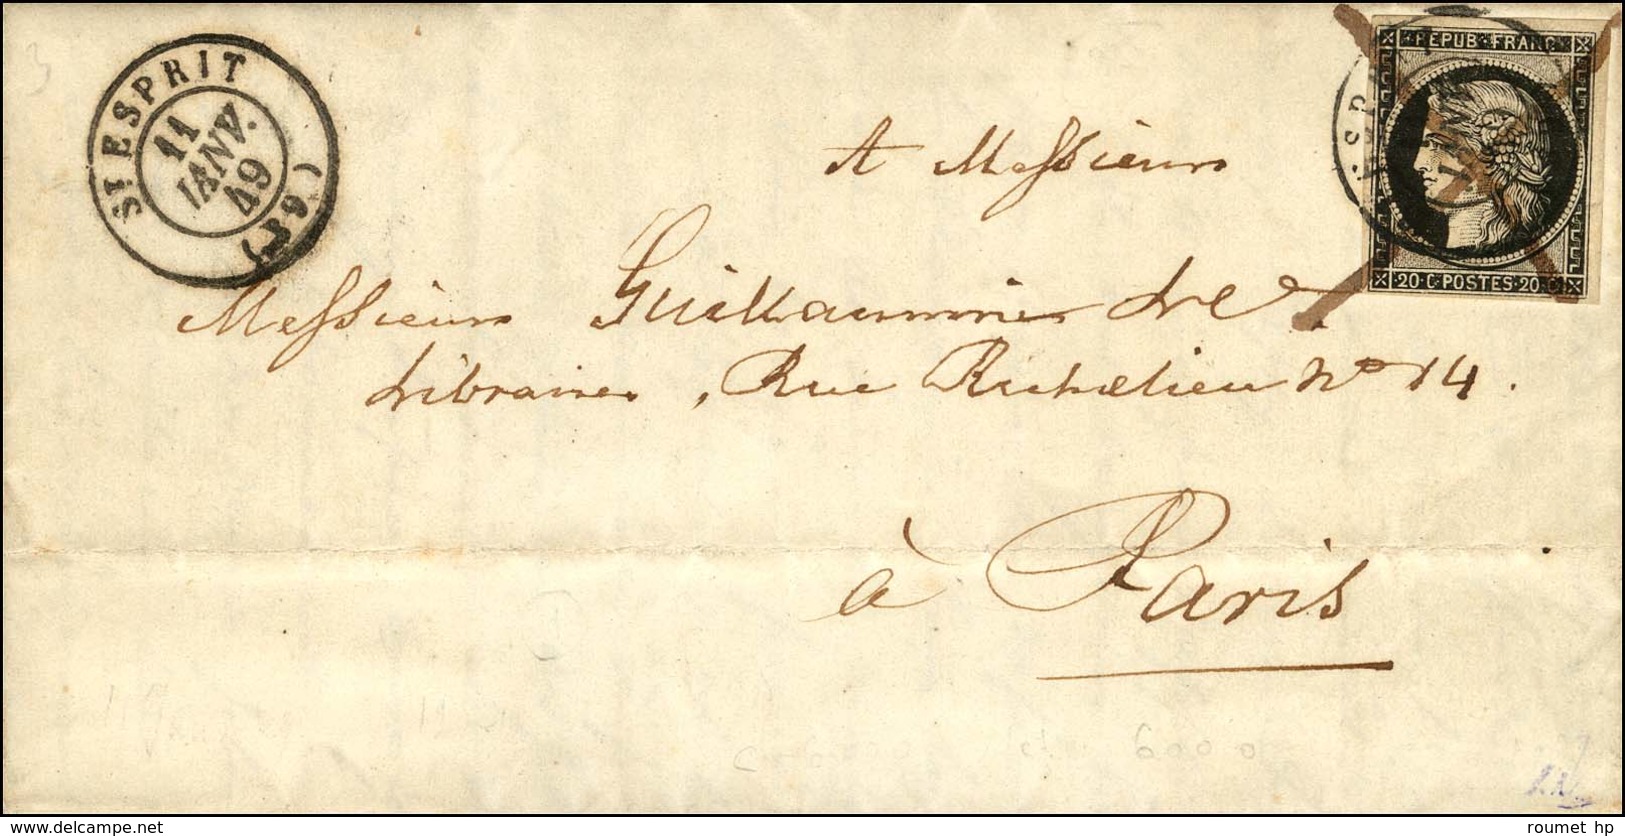 ST ESPRIT
11
JANV.
49
(39)
REPUB FRANC
20 C POSTES 20 C
A Messieurs
Messieurs Guillaumin et
Libraires, Rue Richelieu No 14.
à Paris
6000
roumet hp